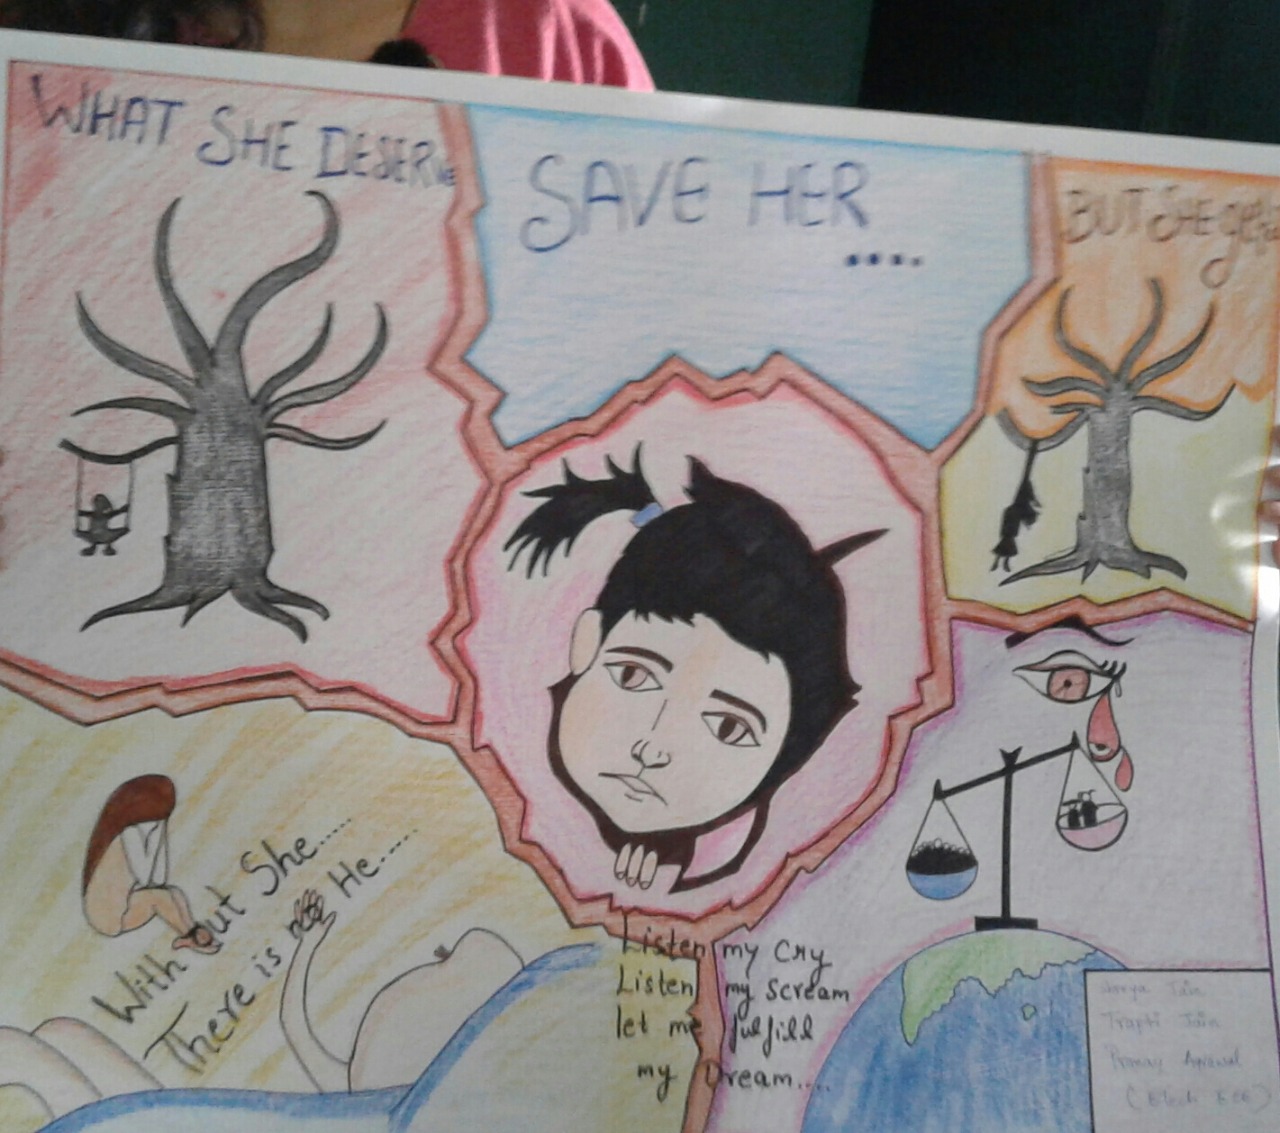 WHAT SHE DESERVE
SAVE HER
....
BUT SHE gets
With out She.....
There is no He....
Listen my Cry
Listen my scream
let me fulfill
my Dream....
Shreya Jain
Trapti Jain
Pranay Agrawal